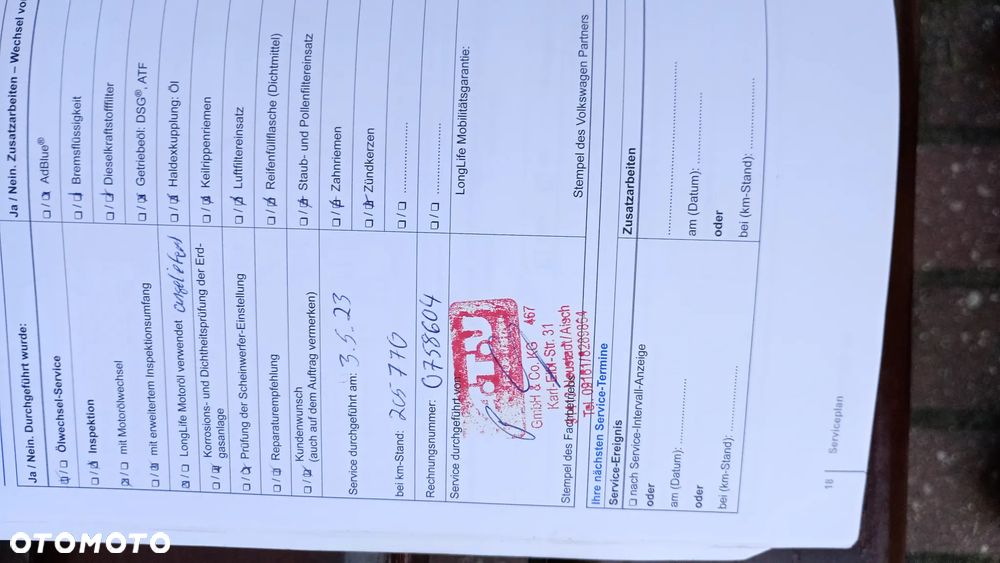 Ja / Nein. Durchgeführt wurde:
❑ / ❑ Ölwechsel-Service
❑ / ❑ Inspektion
❑ / ❑ mit Motorölwechsel
❑ / ❑ mit erweitertem Inspektionsumfang
❑ / ❑ LongLife Motoröl verwendet
❑ / ❑ Korrosions- und Dichtheitsprüfung der Erd-
gasanlage
❑ / ❑ Prüfung der Scheinwerfer-Einstellung
❑ / ❑ Reparaturempfehlung
❑ / ❑ Kundenwunsch
(auch auf dem Auftrag vermerken)
Service durchgeführt am: 3.5.23
bei km-Stand: 205770
Rechnungsnummer: 0758604
Service durchgeführt von
ATU
GmbH & Co. KG 467
Karl-Eibl-Str. 31
Neustadt/Aisch
Tel. 09161/6209864
Stempel des Fachbetriebes
Ja / Nein. Zusatzarbeiten – Wechsel
❑ / ❑ AdBlue®
❑ / ❑ Bremsflüssigkeit
❑ / ❑ Dieselkraftstofffilter
❑ / ❑ Getriebeöl: DSG®, ATF
❑ / ❑ Haldexkupplung: Öl
❑ / ❑ Keilrippenriemen
❑ / ❑ Luftfiltereinsatz
❑ / ❑ Reifenfüllflasche (Dichtmittel)
❑ / ❑ Staub- und Pollenfiltereinsatz
❑ / ❑ Zahnriemen
❑ / ❑ Zündkerzen
❑ / ❑ ..................
❑ / ❑ ..................
LongLife Mobilitätsgarantie:
Stempel des Volkswagen Partners
Ihre nächsten Service-Termine
Service-Ereignis
❑ nach Service-Intervall-Anzeige
oder
am (Datum): ..................
oder
bei (km-Stand): ..................
Zusatzarbeiten
..................
am (Datum): ..................
oder
bei (km-Stand): ..................
18 Serviceplan
OTOMOTO